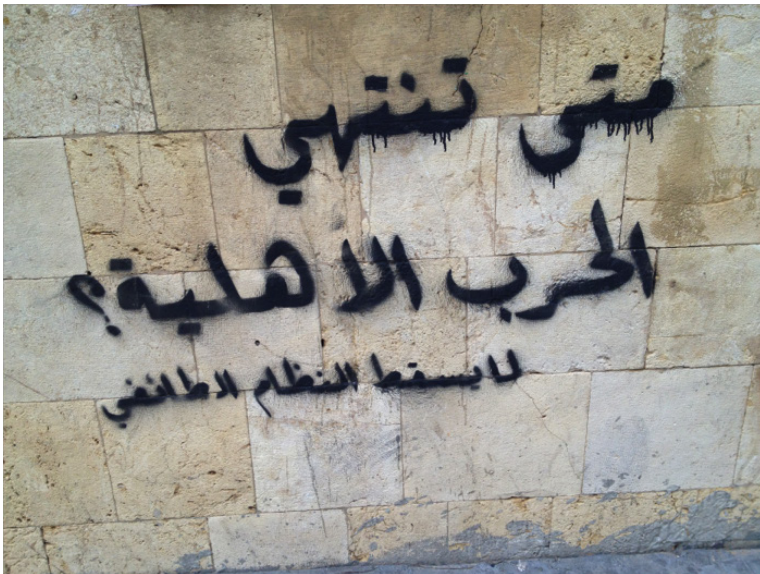 متى تنتهي
الحرب الاهلية؟
لما يسقط النظام الطائفي